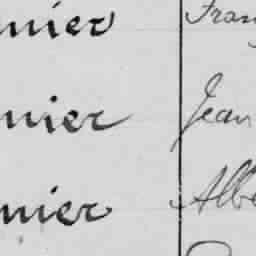 nier Fran
nier Jean
nier Albe